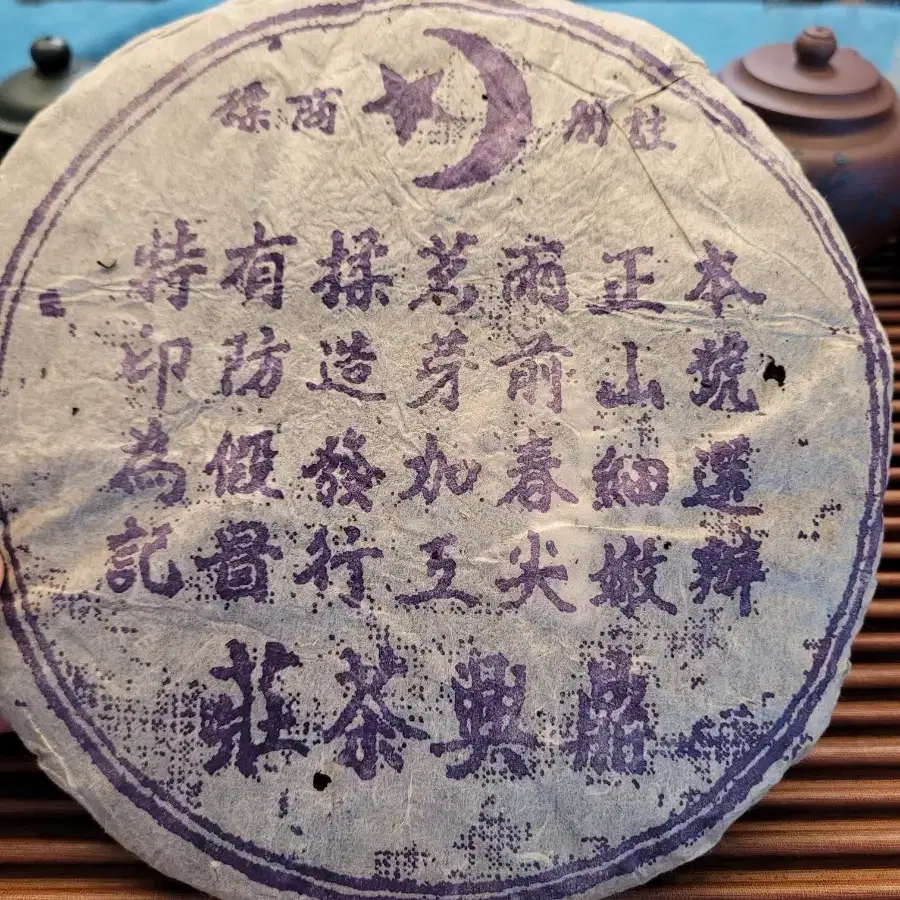 本號選辦
正山細嫩
雨前春尖
茗芽加工
揉造發行
有防假冒
特印為記
鼎興茶莊